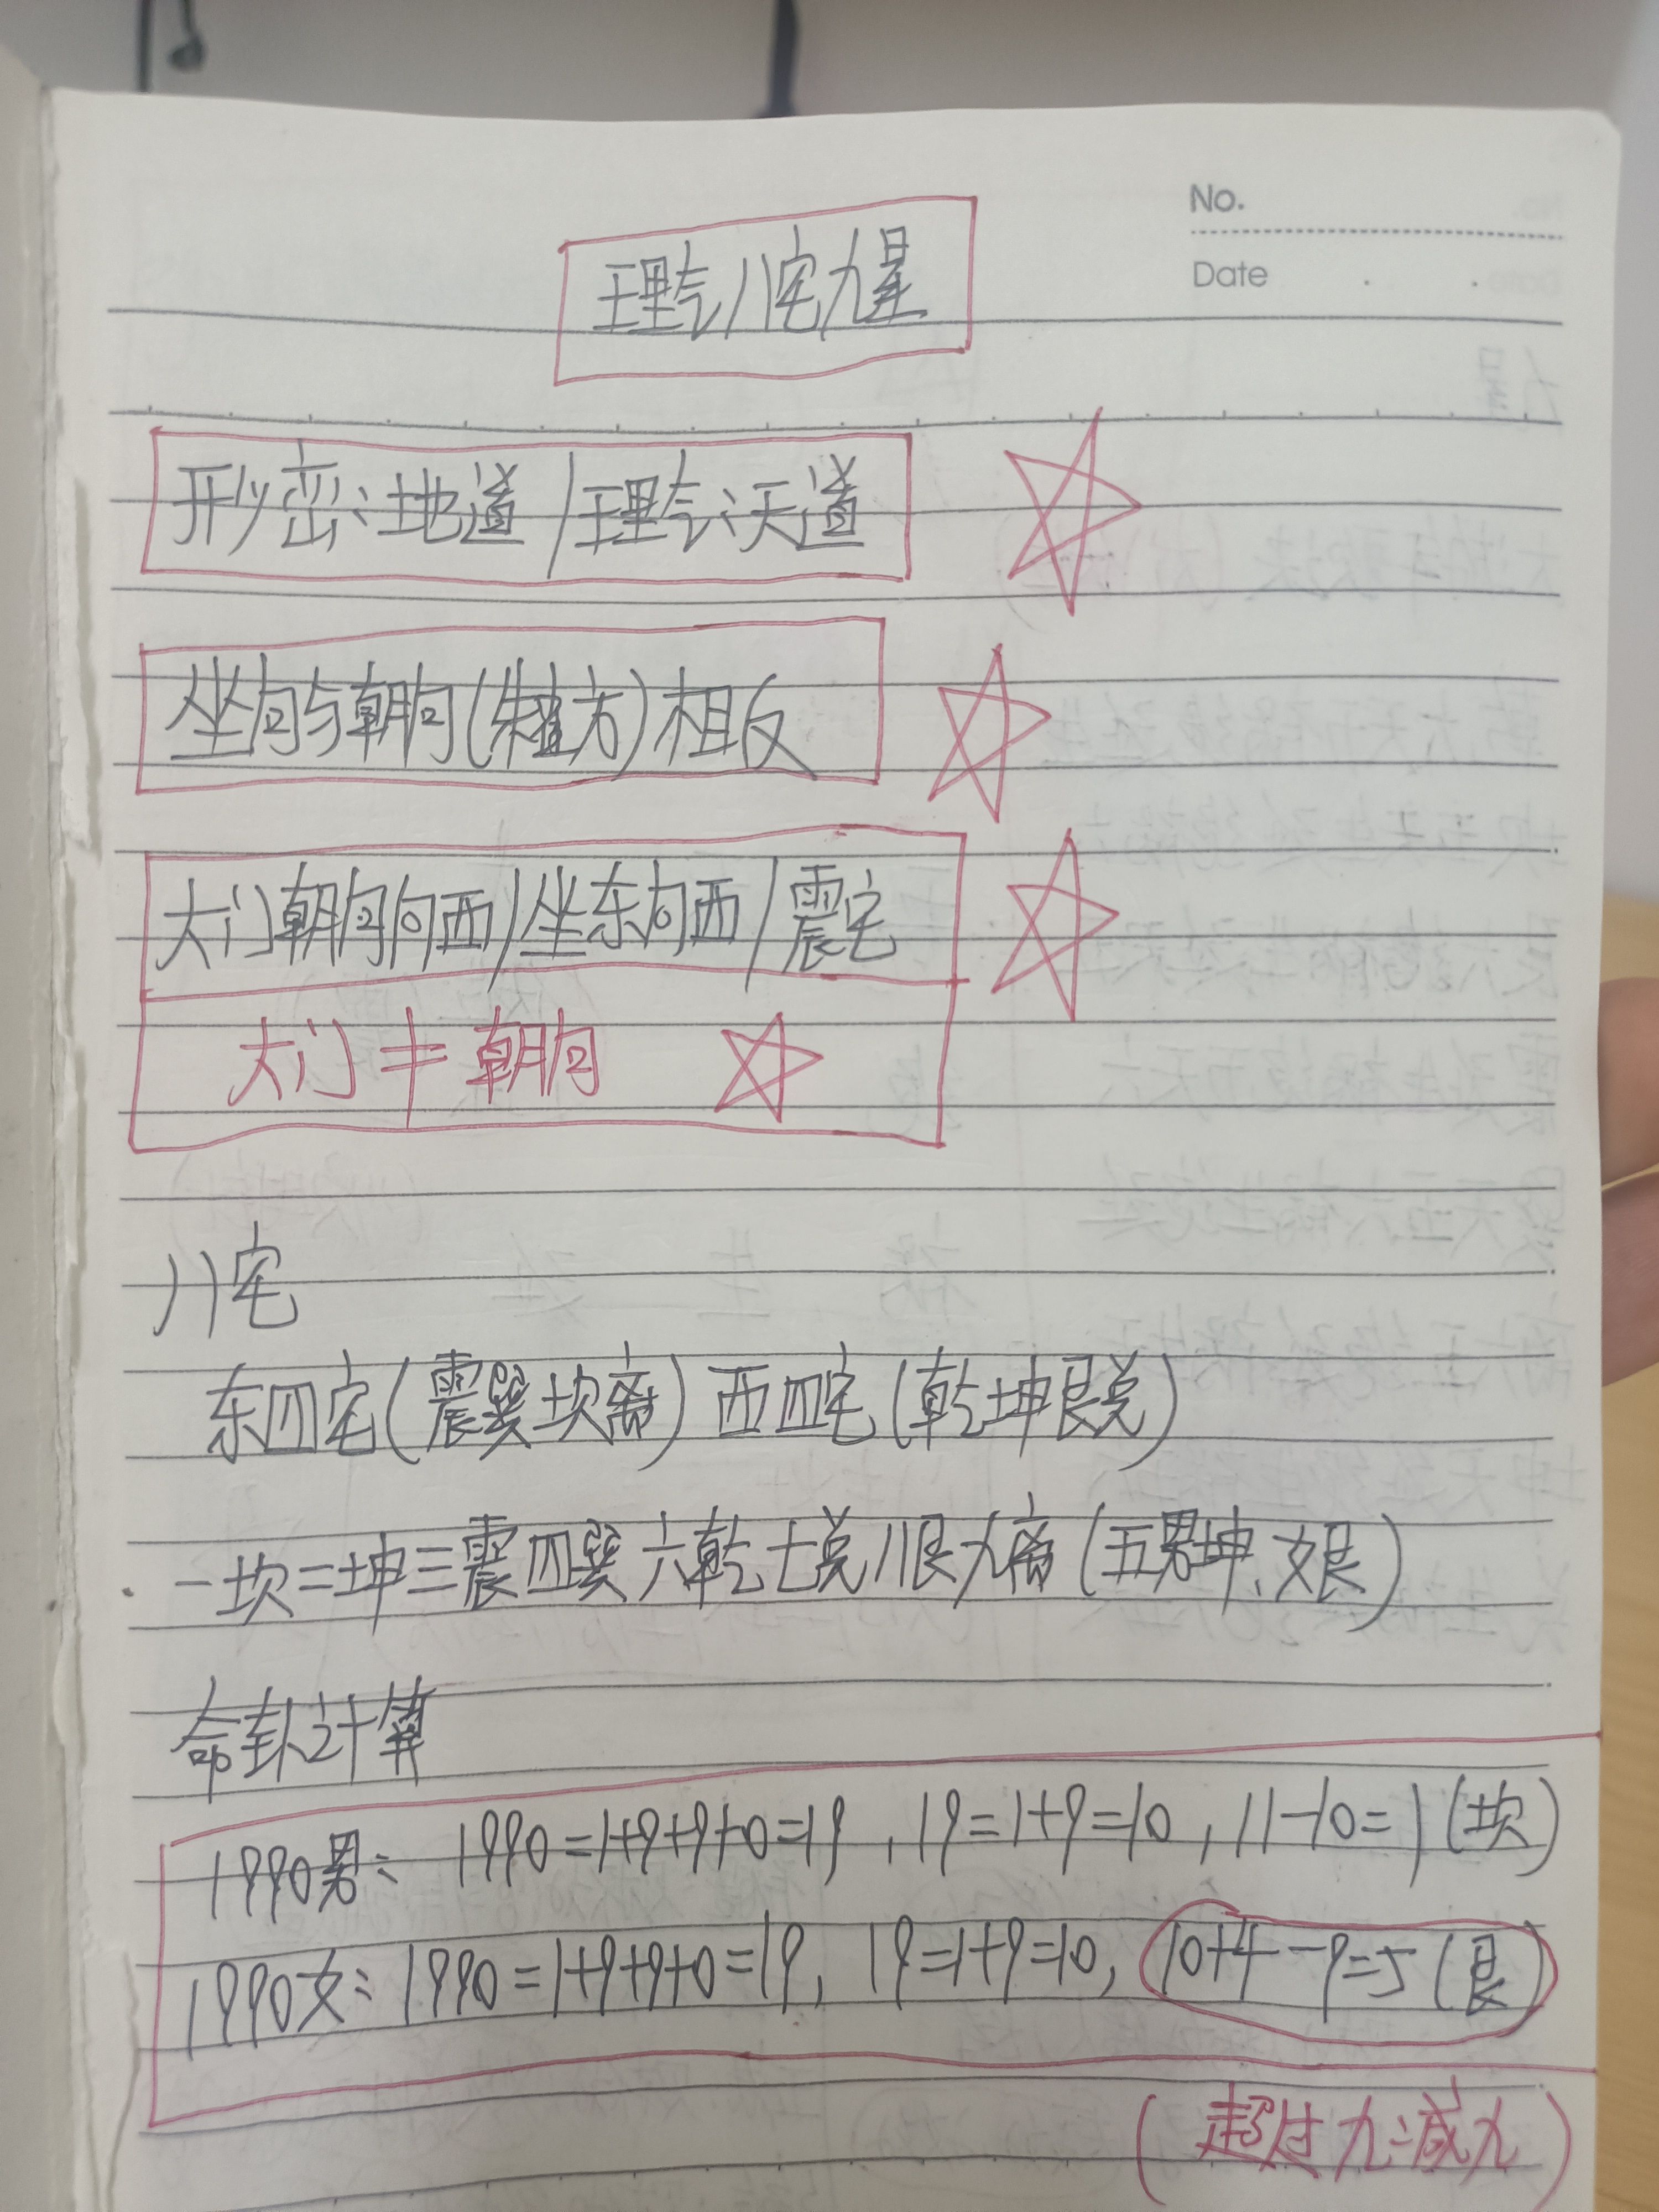 No.
Date
理气八宅九星
形峦:地道/理气:天道
坐向与朝向(朱雀方)相反
大门朝向向西/坐东向西/震宅
大门≠朝向
八宅
东四宅(震巽坎离) 西四宅(乾坤艮兑)
一坎二坤三震四巽六乾七兑八艮九离(五男坤、女艮)
命卦计算
1990男: 1990=1+9+9+0=19, 19=1+9=10, 11-10=1(坎)
1990女: 1990=1+9+9+0=19, 19=1+9=10, 10+4-9=5(艮)
(超过九:减九)